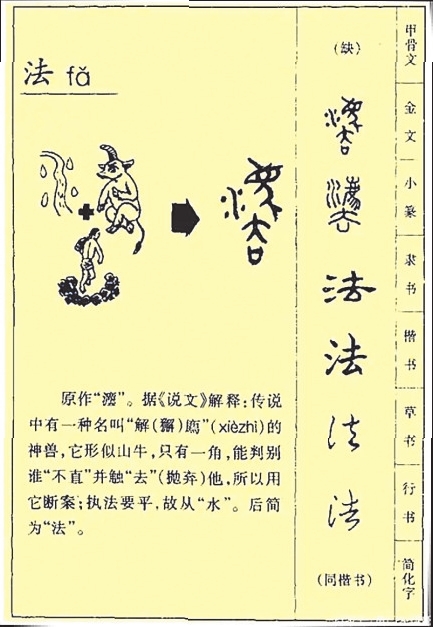 法 fǎ
原作“灋”。据《说文》解释：传说
中有一种名叫“解（獬）廌”（xièzhì）的
神兽，它形似山牛，只有一角，能判别
谁“不直”并触“去”（抛弃）他，所以用
它断案；执法要平，故从“水”。后简
为“法”。
（缺） 甲骨文
灋 金文
灋 小篆
法 隶书
法 楷书
法 草书
法 行书
（同楷书） 简化字